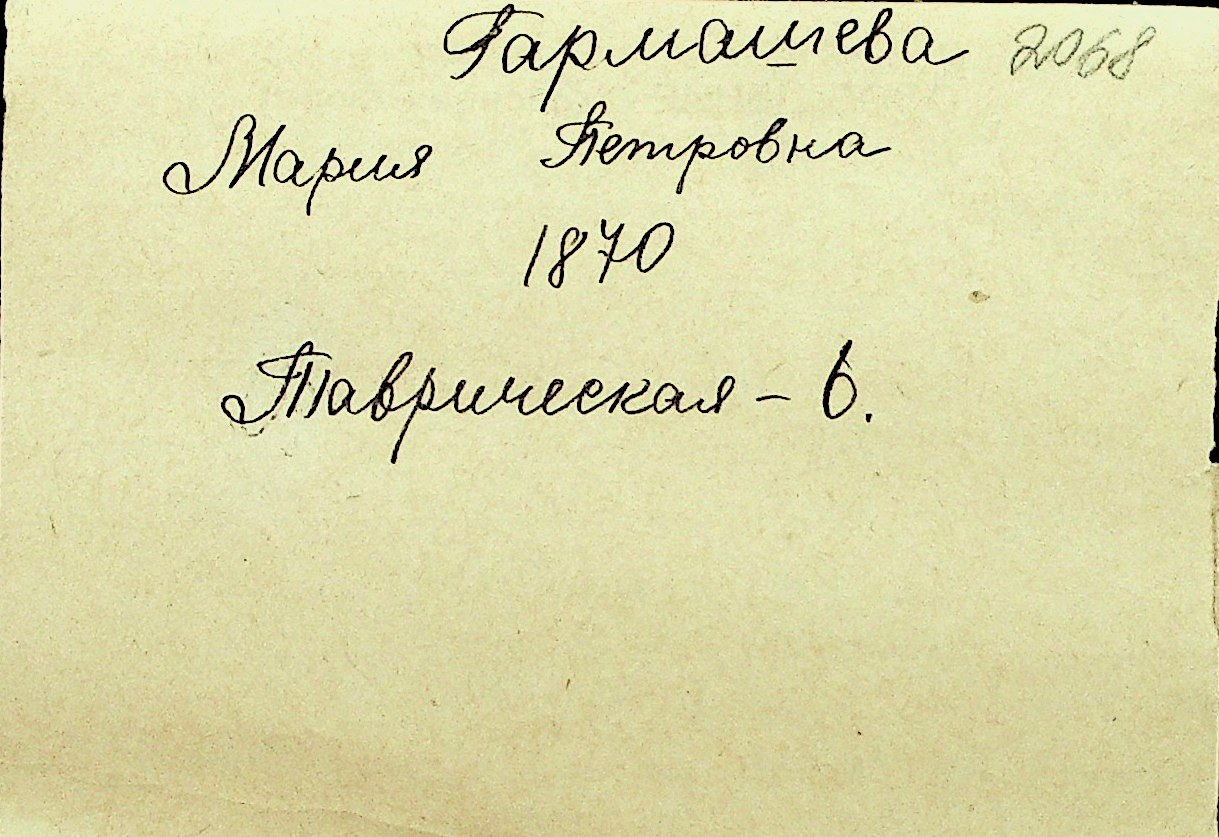 Гармашева 2068
Мария Петровна
1870
Таврическая - 6.